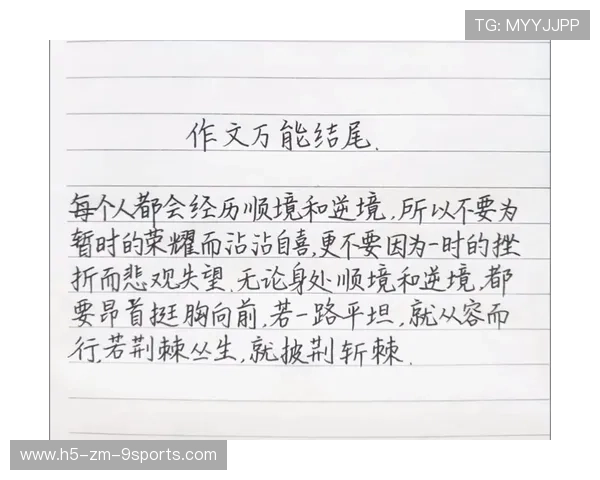 TG: MYYJJPP
作文万能结尾.
每个人都会经历顺境和逆境,所以不要为
暂时的荣耀而沾沾自喜,更不要因为一时的挫
折而悲观失望.无论身处顺境和逆境,都
要昂首挺胸向前,若一路平坦,就从容而
行,若荆棘丛生,就披荆斩棘.
www.h5-zm-9sports.com/